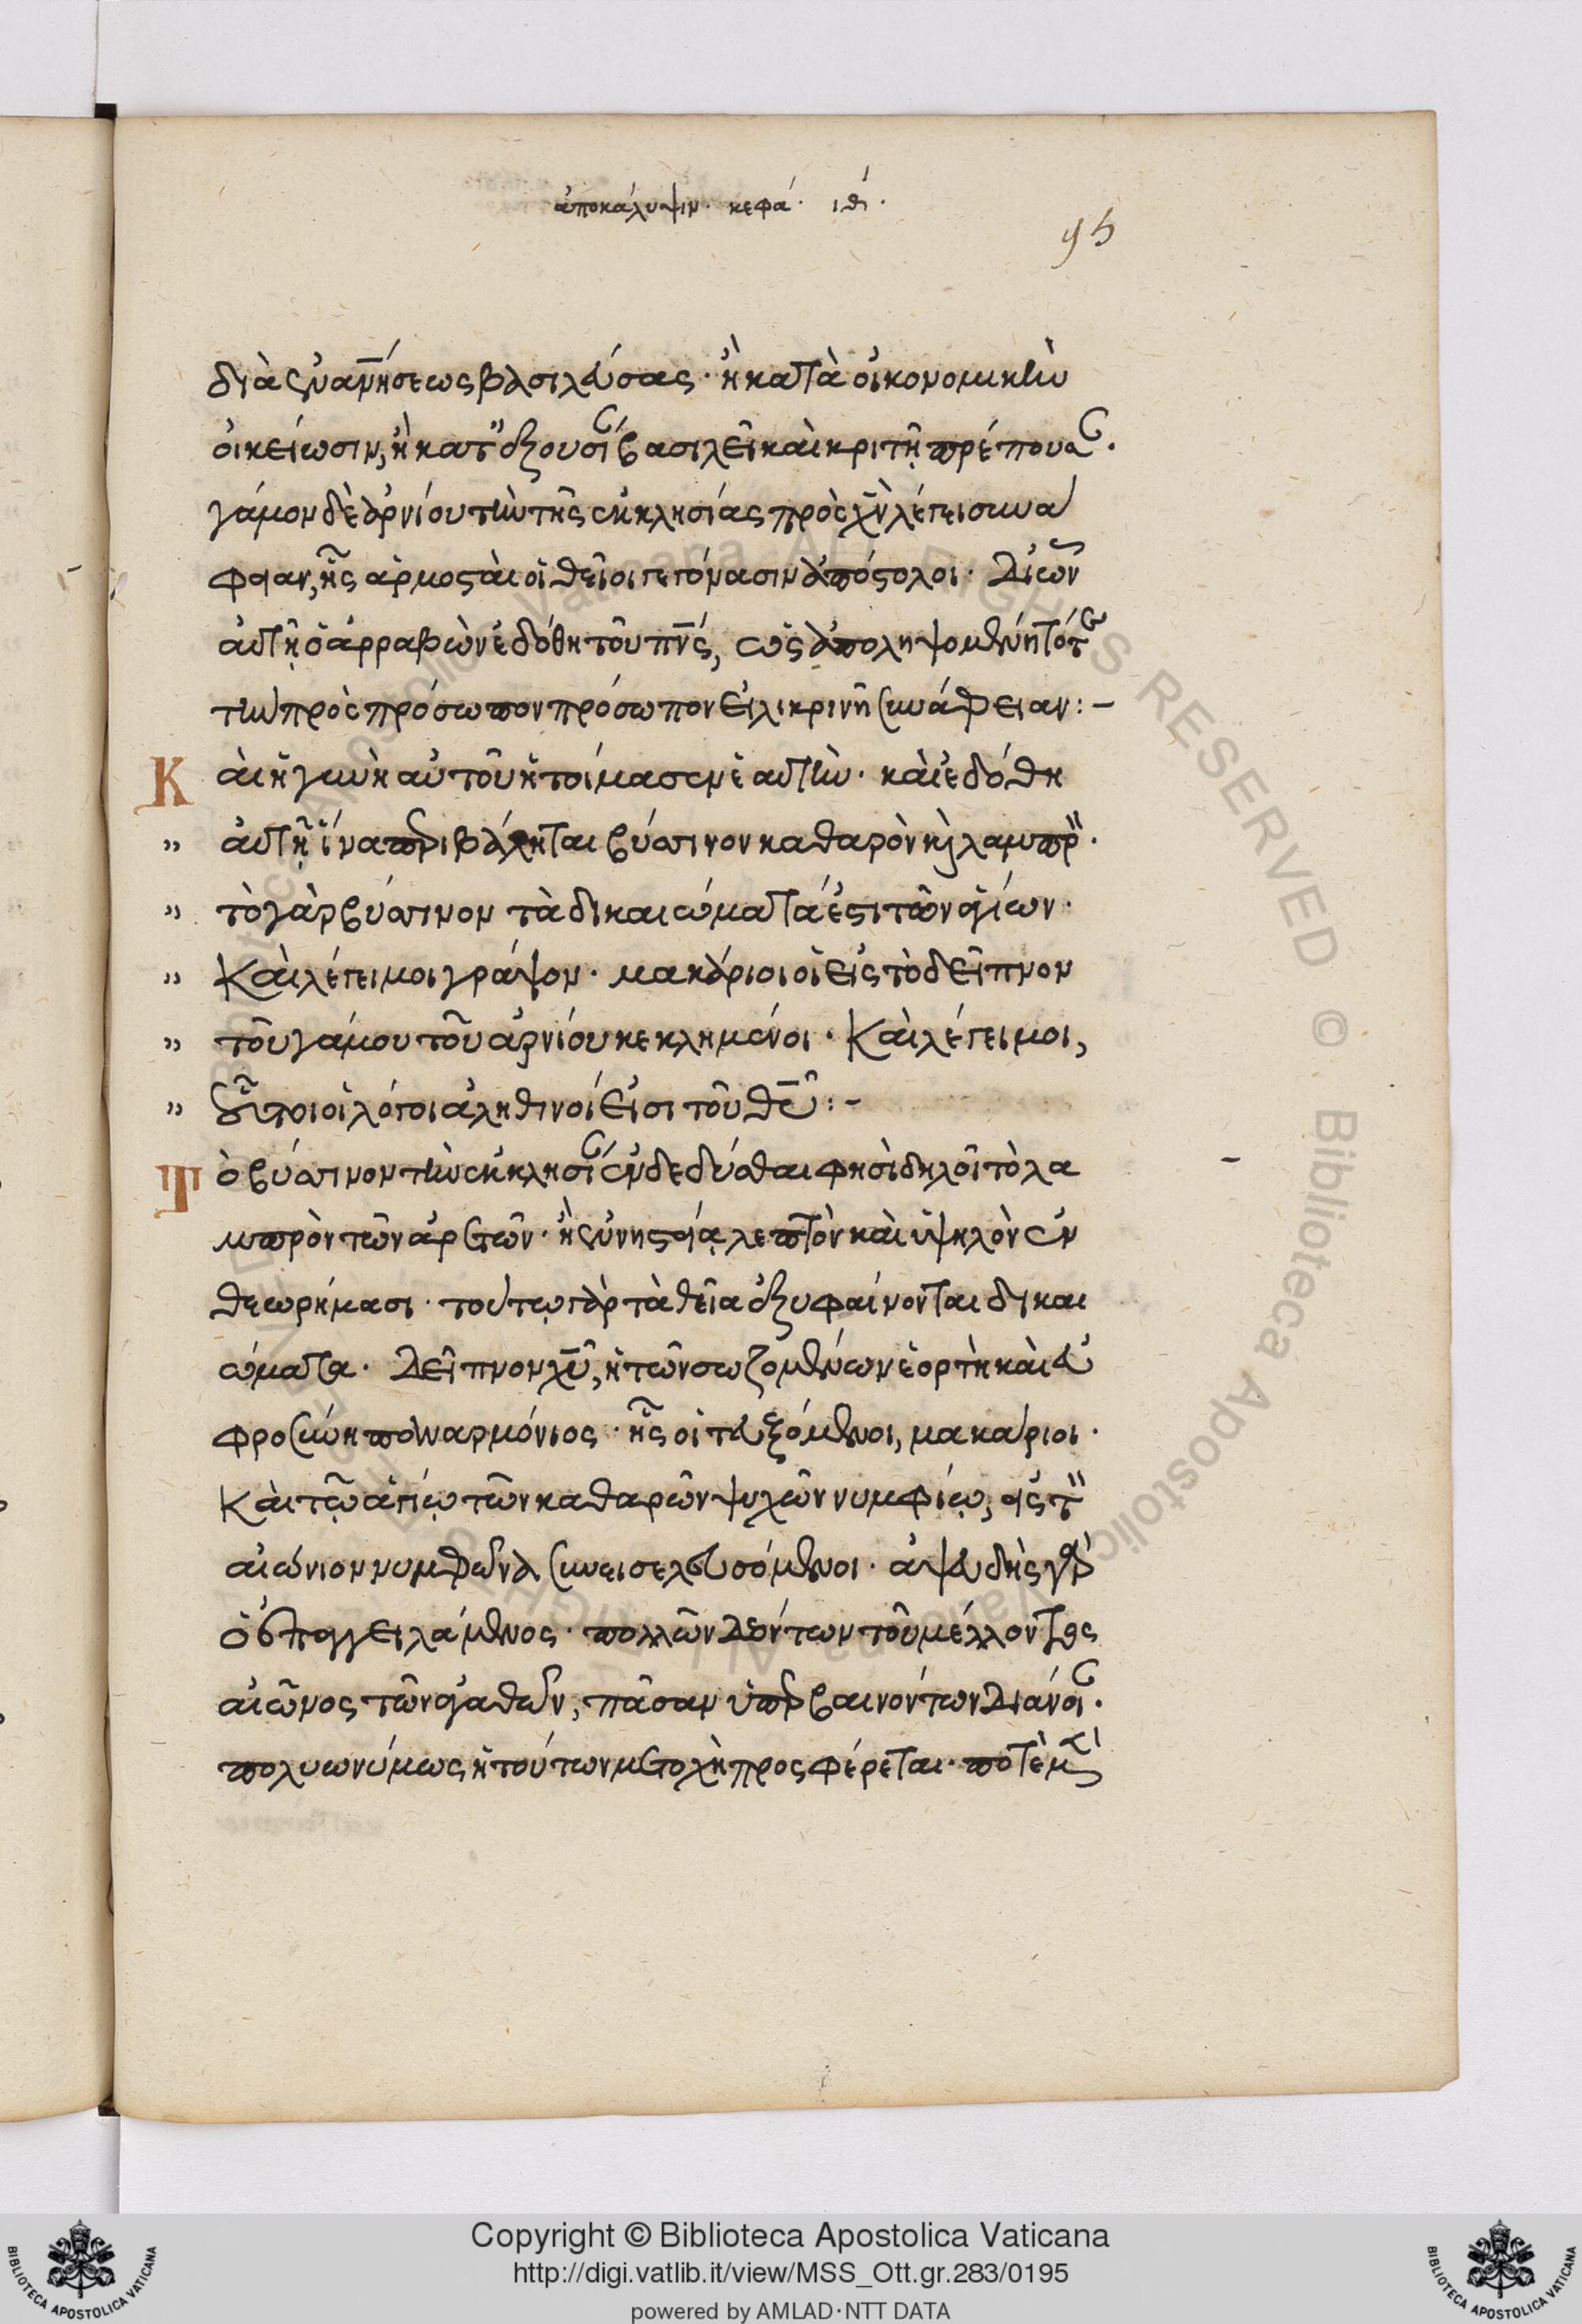 ἀποκάλυψιν. κεφά. ιθ΄.
95
διὰ συναινέσεως βασιλεύσας· ἢ κατὰ οἰκονομικὴν
οἰκείωσιν, ἢ κατ' ἐξουσίαν βασιλεῖ καὶ κριτῇ πρέπουσαν.
γάμον δὲ ἀρνίου τὴν τῆς ἐκκλησίας πρὸς χν λέγει συνά
φειαν, ἧς ἁρμοσταὶ οἱ θεῖοι γεγόνασιν ἀπόστολοι. δι' ὧν
αὐτῇ ὁ ἀρραβὼν ἐδόθη τοῦ πνς, ὡς ἀποληψομένη τότε
τὴν πρὸς πρόσωπον πρόσωπον εἰλικρινῆ συνάφειαν:-
Καὶ ἡ γυνὴ αὐτοῦ ἡτοίμασεν ἑαυτήν. καὶ ἐδόθη
" αὐτῇ ἵνα περιβάληται βύσσινον καθαρὸν κὶ λαμπρόν.
" τὸ γὰρ βύσσινον τὰ δικαιώματά ἐστι τῶν ἁγίων.
" Καὶ λέγει μοι γράψον. μακάριοι οἱ εἰς τὸ δεῖπνον
" τοῦ γάμου τοῦ ἀρνίου κεκλημένοι. Καὶ λέγει μοι,
" οὗτοι οἱ λόγοι ἀληθινοί εἰσι τοῦ θυ:-
Τὸ βύσσινον τὴν ἐκκλησίαν ἐνδεδύσθαι φησὶ δηλοῖ τὸ λα
μπρὸν τῶν ἀρετῶν. ἢ συνησ λεπτὸν καὶ ὑψηλὸν ἐν
θεωρήμασι. τούτῳ γὰρ τὰ θεῖα ἐξυφαίνονται δικαι
ώματα. δεῖπνον χυ, ἡ τῶν σωζομένων ἑορτὴ καὶ εὐ
φροσύνη παναρμόνιος. ἧς οἱ τευξόμενοι, μακάριοι.
Καὶ τῷ ἁγίῳ τῶν καθαρῶν ψυχῶν νυμφίῳ, εἰς τὸν
αἰώνιον νυμφῶνα συνεισελευσόμενοι. ἀψευδὴς γὰρ
ὁ ἐπαγγειλάμενος. πολλῶν δὲ ὄντων τοῦ μέλλοντος
αἰῶνος τῶν ἀγαθῶν, πᾶσαν ὑπερβαινόντων διάνοιαν.
πολυωνύμως ἡ τούτων μετοχὴ προσφέρεται. ποτὲ μὲν
Copyright © Biblioteca Apostolica Vaticana
http://digi.vatlib.it/view/MSS_Ott.gr.283/0195
powered by AMLAD·NTT DATA